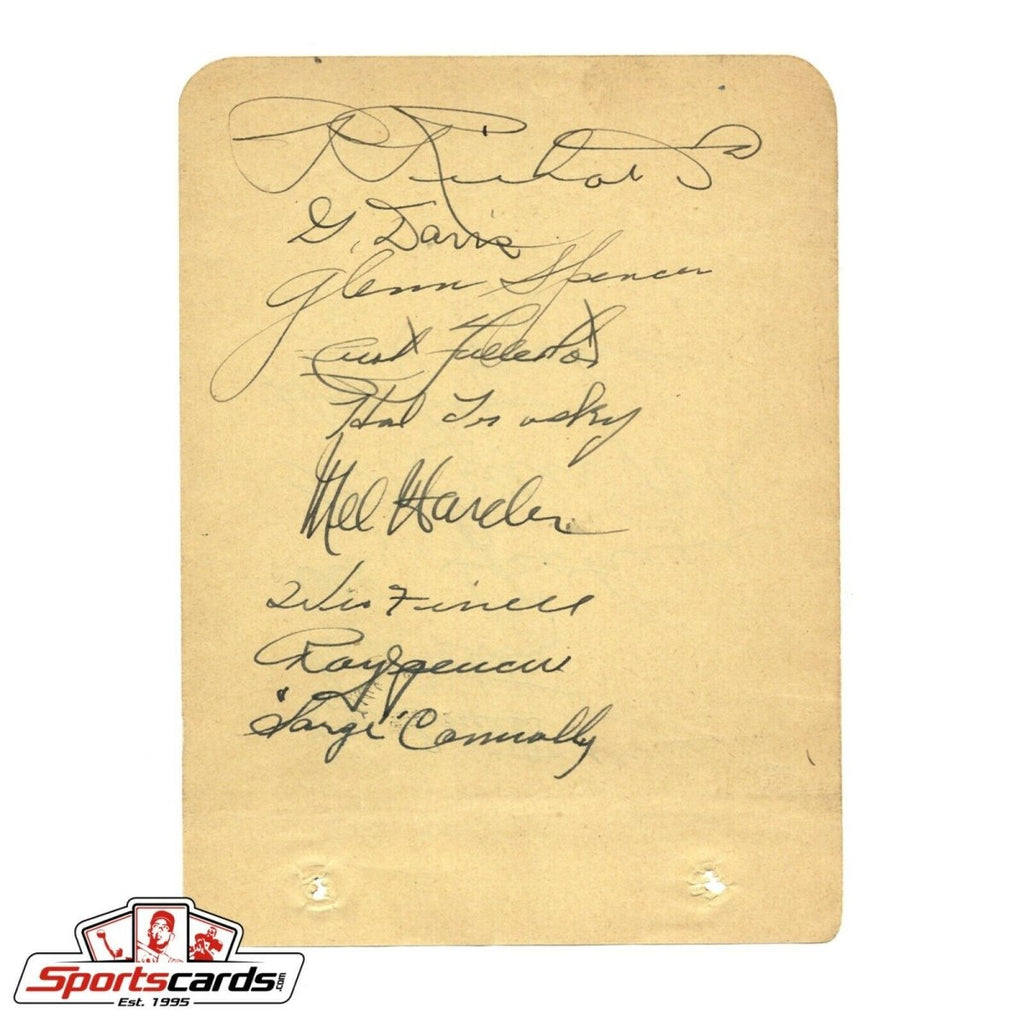 P Richards
G. Davis
Glenn Spencer
Curt Fullerton
Hal Trosky
Mel Harder
Ferrell
Roy Spencer
"Sarge" Connally
Sportscards.com
Est. 1995